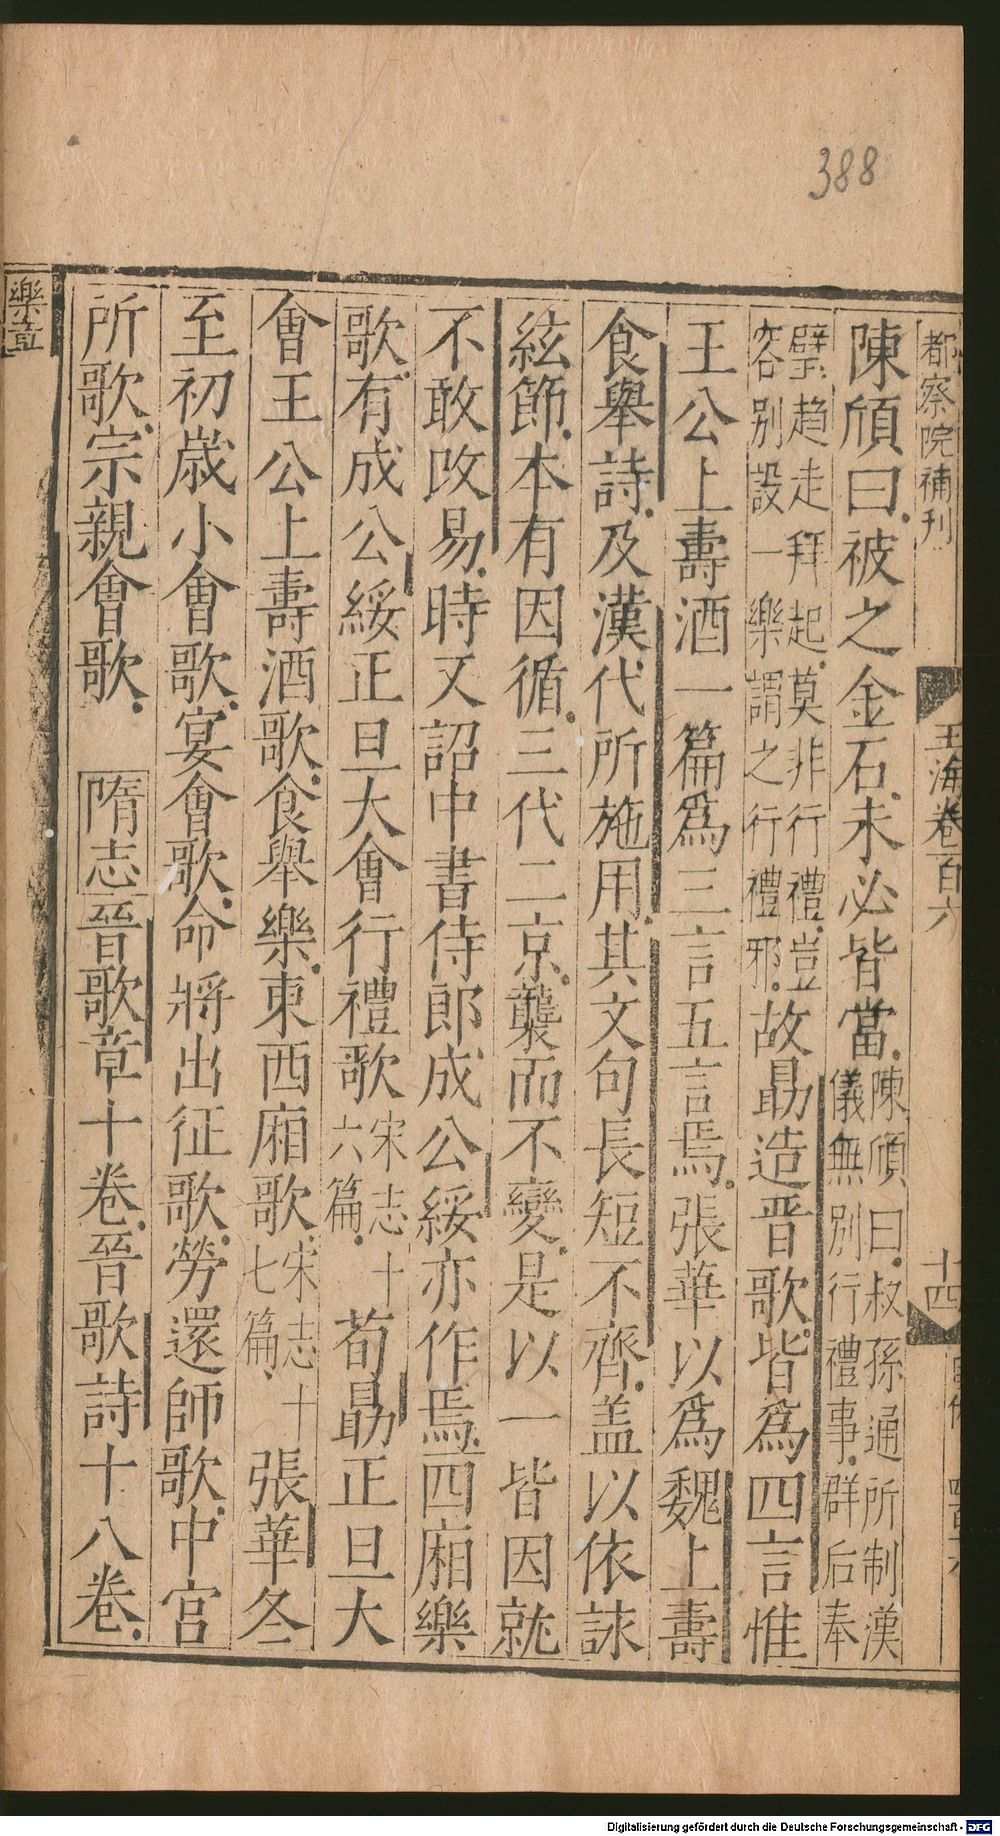 388
都察院補刊
玉海卷百六
十四
陳頎曰被之金石未必皆當陳頎曰叔孫通所制漢儀無別行禮事群后奉
璧趨走拜起莫非行禮豈容別設一樂謂之行禮邪故勗造晋歌皆為四言惟
王公上壽酒一篇為三言五言焉張華以為魏上壽
食舉詩及漢代所施用其文句長短不齊盖以依詠
絃節本有因循三代二京襲而不變是以一皆因就
不敢攺易時又詔中書侍郎成公綏亦作焉四廂樂
歌有成公綏正旦大會行禮歌宋志十六篇荀勗正旦大
會王公上壽酒歌食舉樂東西廂歌宋志十七篇張華冬
至初歲小會歌宴會歌命將出征歌勞還師歌中宮
所歌宗親會歌 隋志晉歌章十卷晉歌詩十八卷
樂章
Digitalisierung gefördert durch die Deutsche Forschungsgemeinschaft - DFG